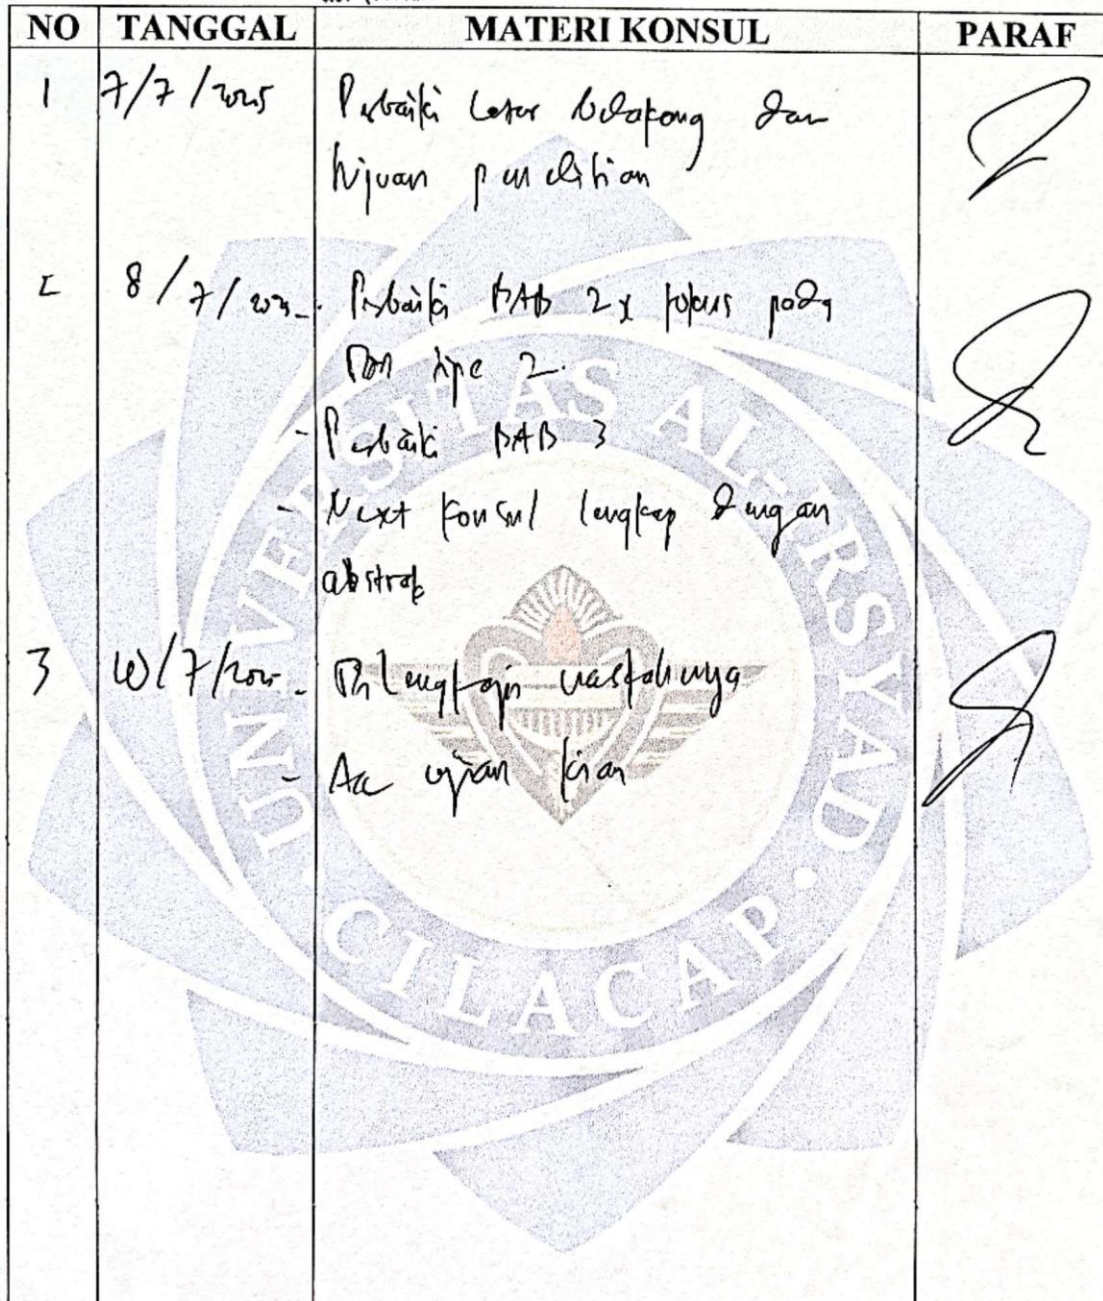 NO TANGGAL MATERI KONSUL PARAF
1 7/7/2025 Perbaiki Latar belakang dan
tujuan penelitian
2 8/7/2025 - Perbaiki BAB 2, fokus pada
DM tipe 2.
- Perbaiki BAB 3
- Next konsul lengkap dengan
abstrak
3 10/7/2025 - Dilengkapi naskahnya
- Acc ujian kian
UNIVERSITAS AL-IRSYAD
CILACAP